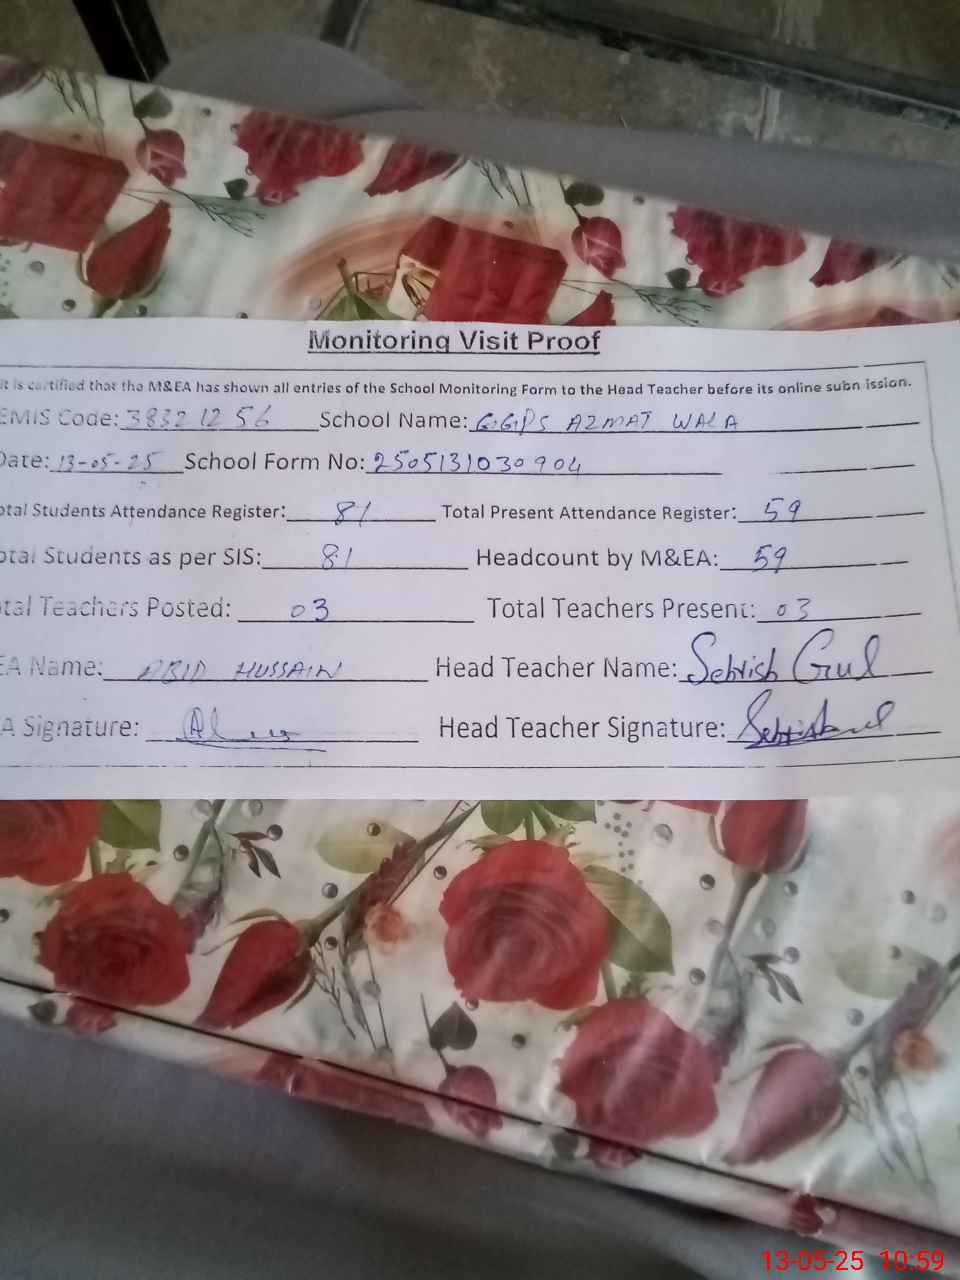 Monitoring Visit Proof
it is certified that the M&EA has shown all entries of the School Monitoring Form to the Head Teacher before its online subn ission.
EMIS Code: 38321256 School Name: G.G.P.S AZMAT WALA
Date: 13-05-25 School Form No: 2505131030904
otal Students Attendance Register: 81 Total Present Attendance Register: 59
otal Students as per SIS: 81 Headcount by M&EA: 59
tal Teachers Posted: 03 Total Teachers Present: 03
EA Name: ABID HUSSAIN Head Teacher Name: Sehrish Gul
A Signature: Head Teacher Signature:
13-05-25 10:59